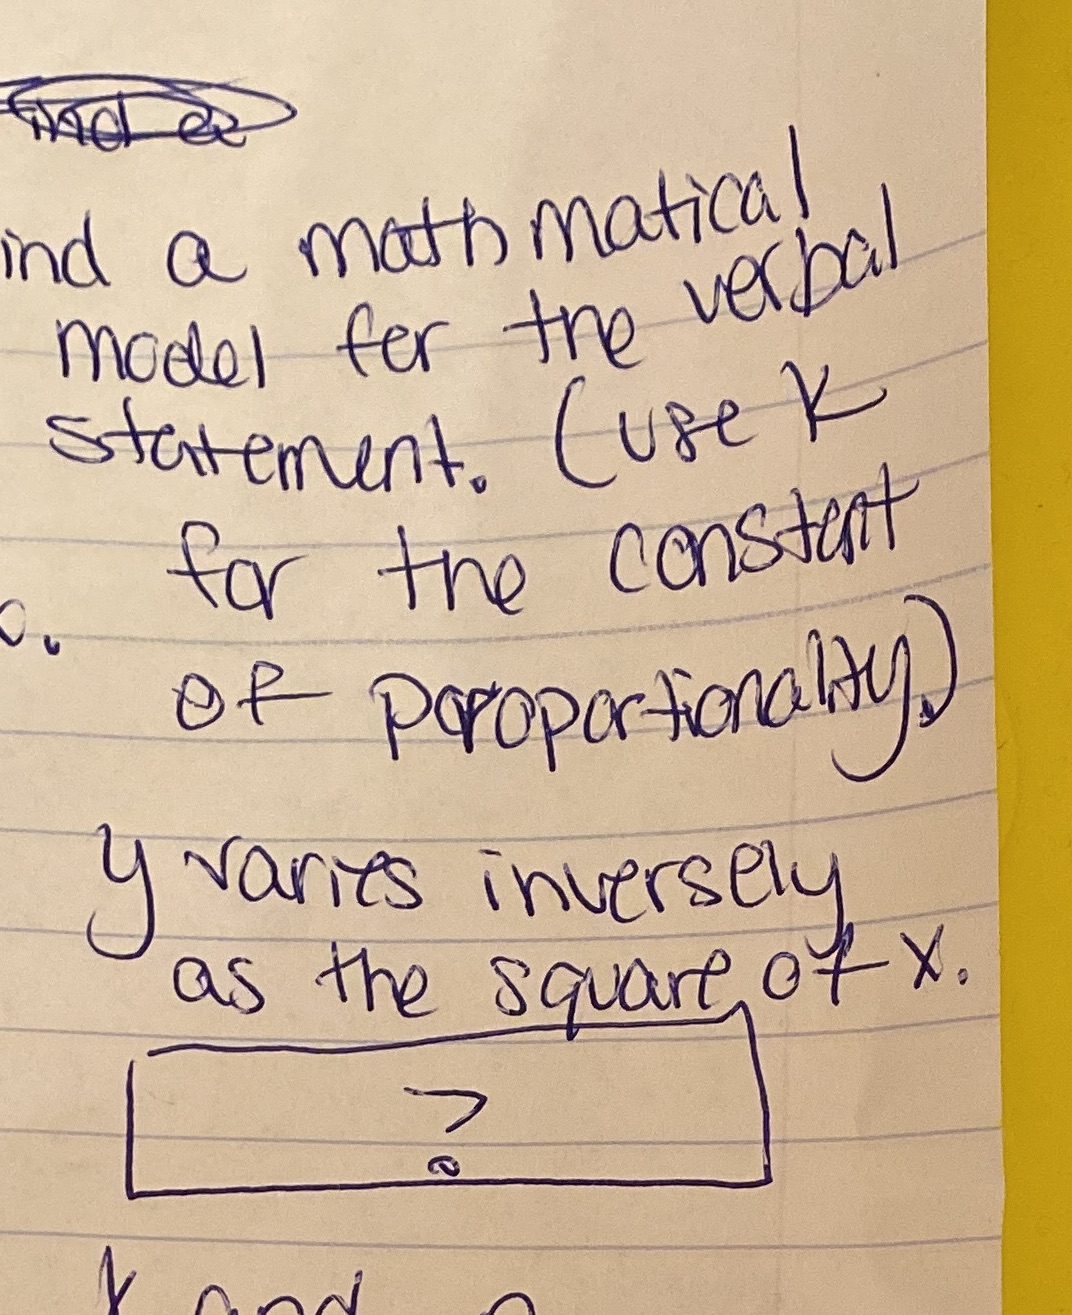 ind a mathmatical
model for the verbal
statement. (use k
for the constant
of poroportionality.)
y varies inversely
as the square of x.
?